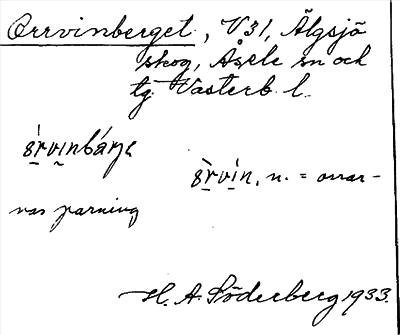 Orrvinberget, V 31, Älgsjö
skog, Åsele sn och
tg. Västerb. l.
örvin, n. = orrar-
nas parning
H. A. Söderberg 1933.